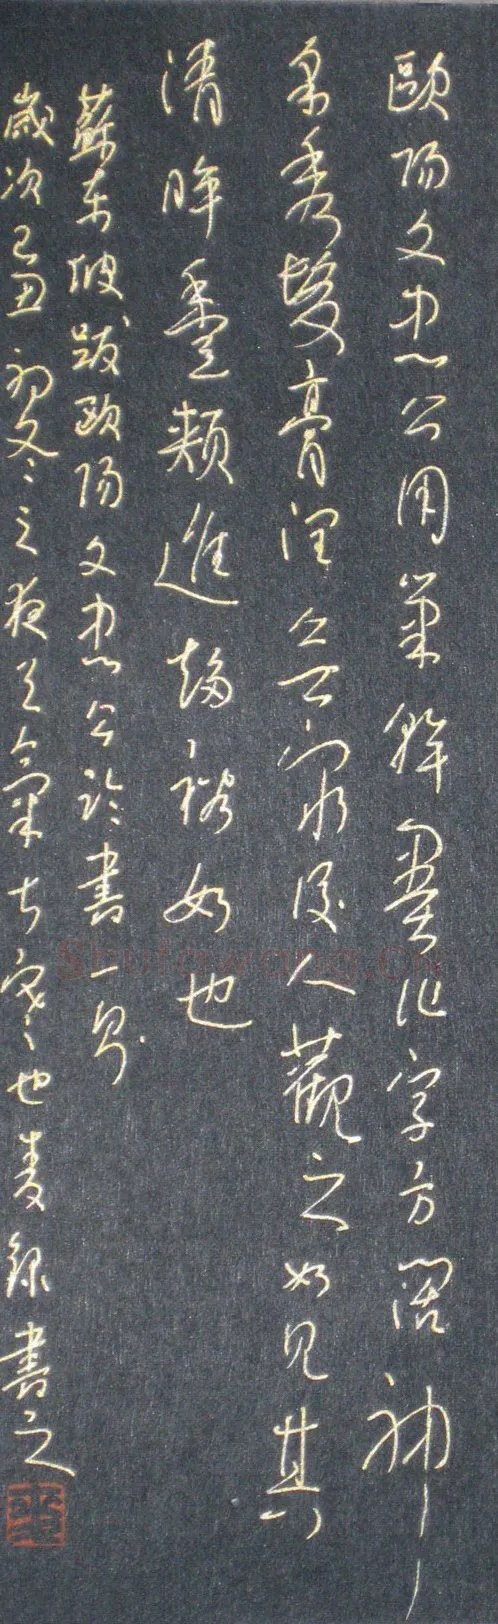 歐陽文忠公用筆幹墨作字方闊神
采秀發膏潤無窮後人觀之如見其
清眸豐頰進趨裕如也
蘇東坡跋歐陽文忠公論書一則
歲次己丑初冬之夜天氣寒也錄書之
Shufawang.CN